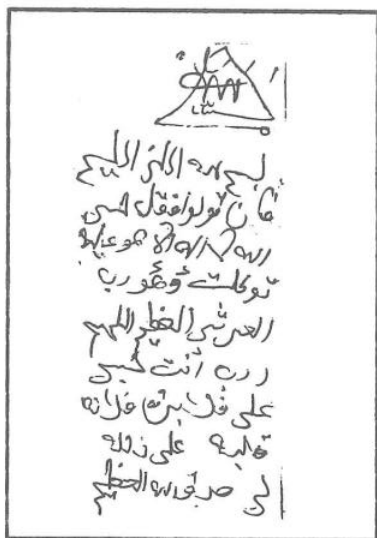 بسم الله الرحمن الرحيم
فان تولوا فقل حسبي
الله لا اله الا هو عليه
توكلت وهو رب
العرش العظيم اللهم
رب أنت حسبي
على فلانه
على
صدق الله العظيم